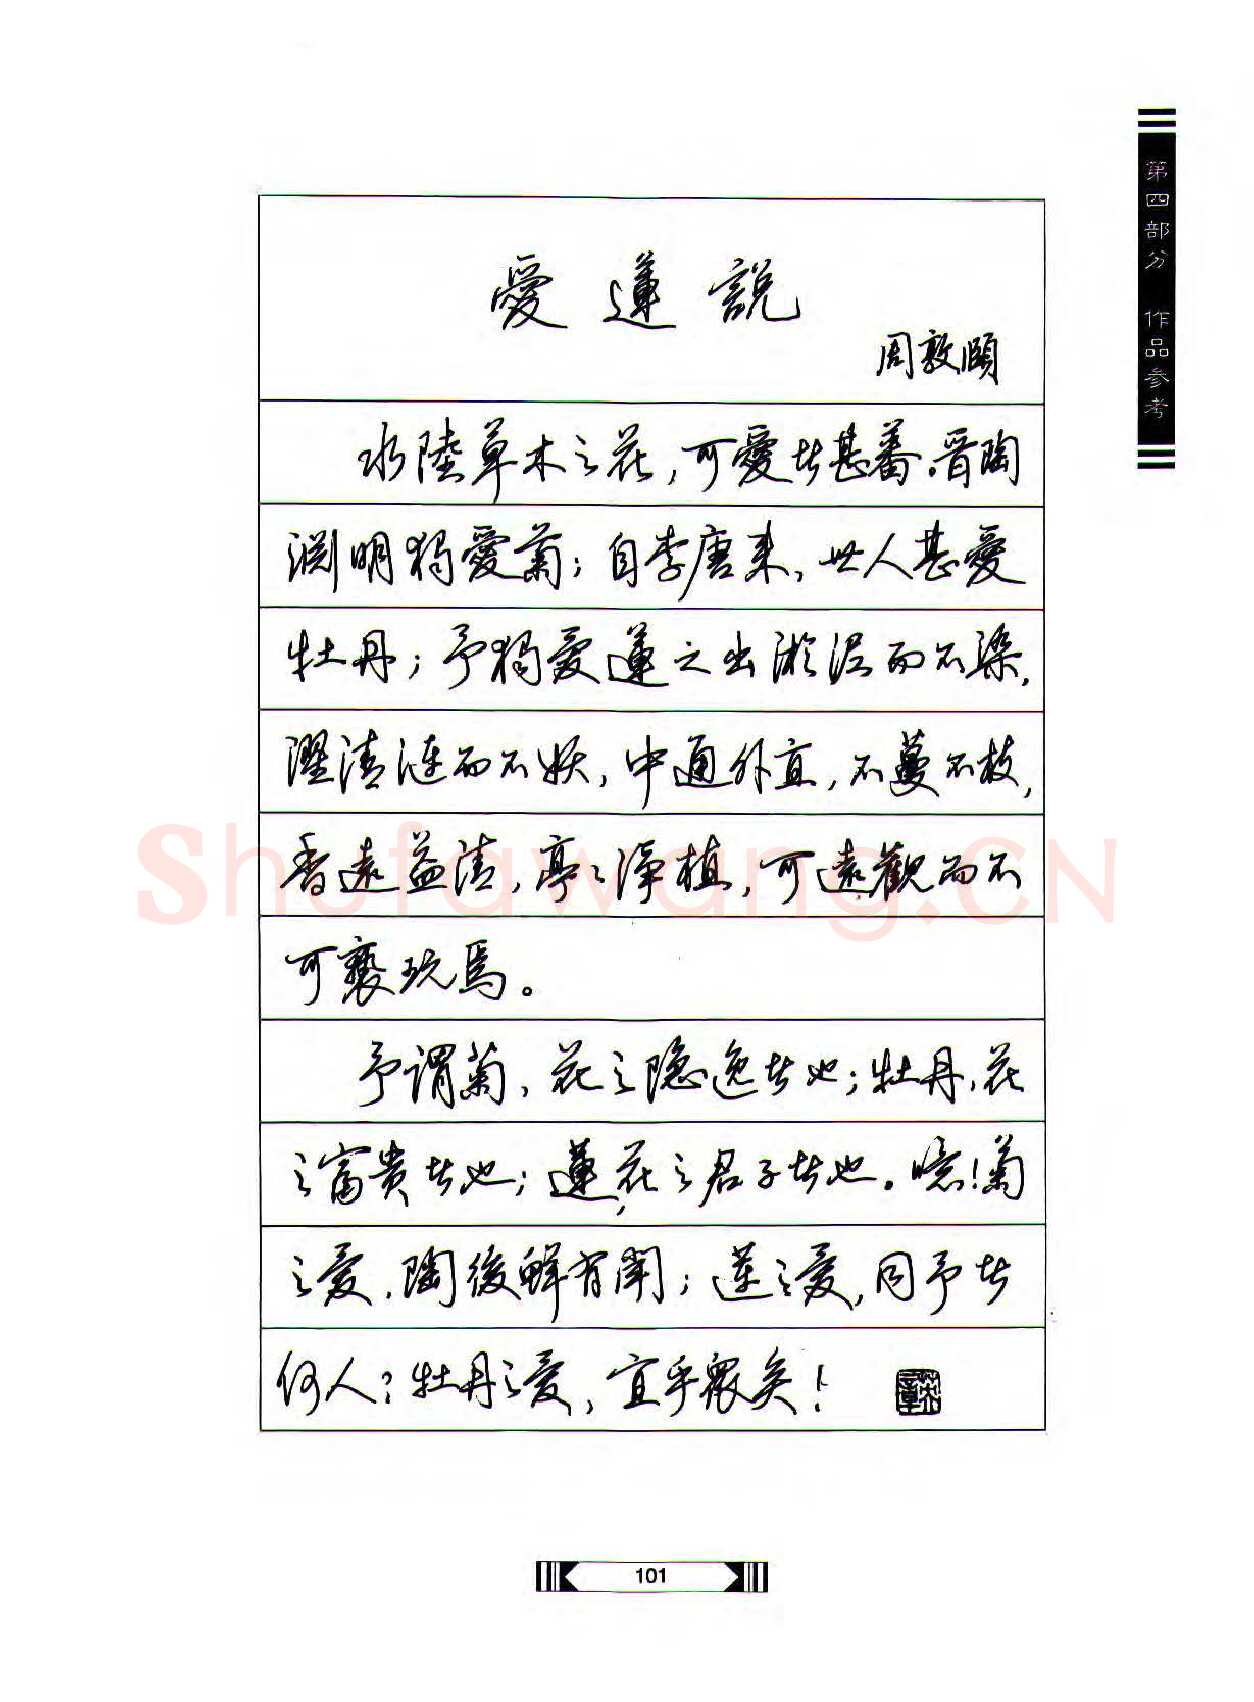 第四部分 作品参考
愛蓮說
周敦頤
水陸草木之花,可愛者甚蕃。晉陶
淵明獨愛菊;自李唐來,世人甚愛
牡丹;予獨愛蓮之出淤泥而不染,
濯清漣而不妖,中通外直,不蔓不枝,
香遠益清,亭々淨植,可遠觀而不
可褻玩焉。
予謂菊,花之隱逸者也;牡丹,花
之富貴者也;蓮,花之君子者也。噫!菊
之愛,陶後鮮有聞;蓮之愛,同予者
何人?牡丹之愛,宜乎衆矣!
Shufawang.CN
101